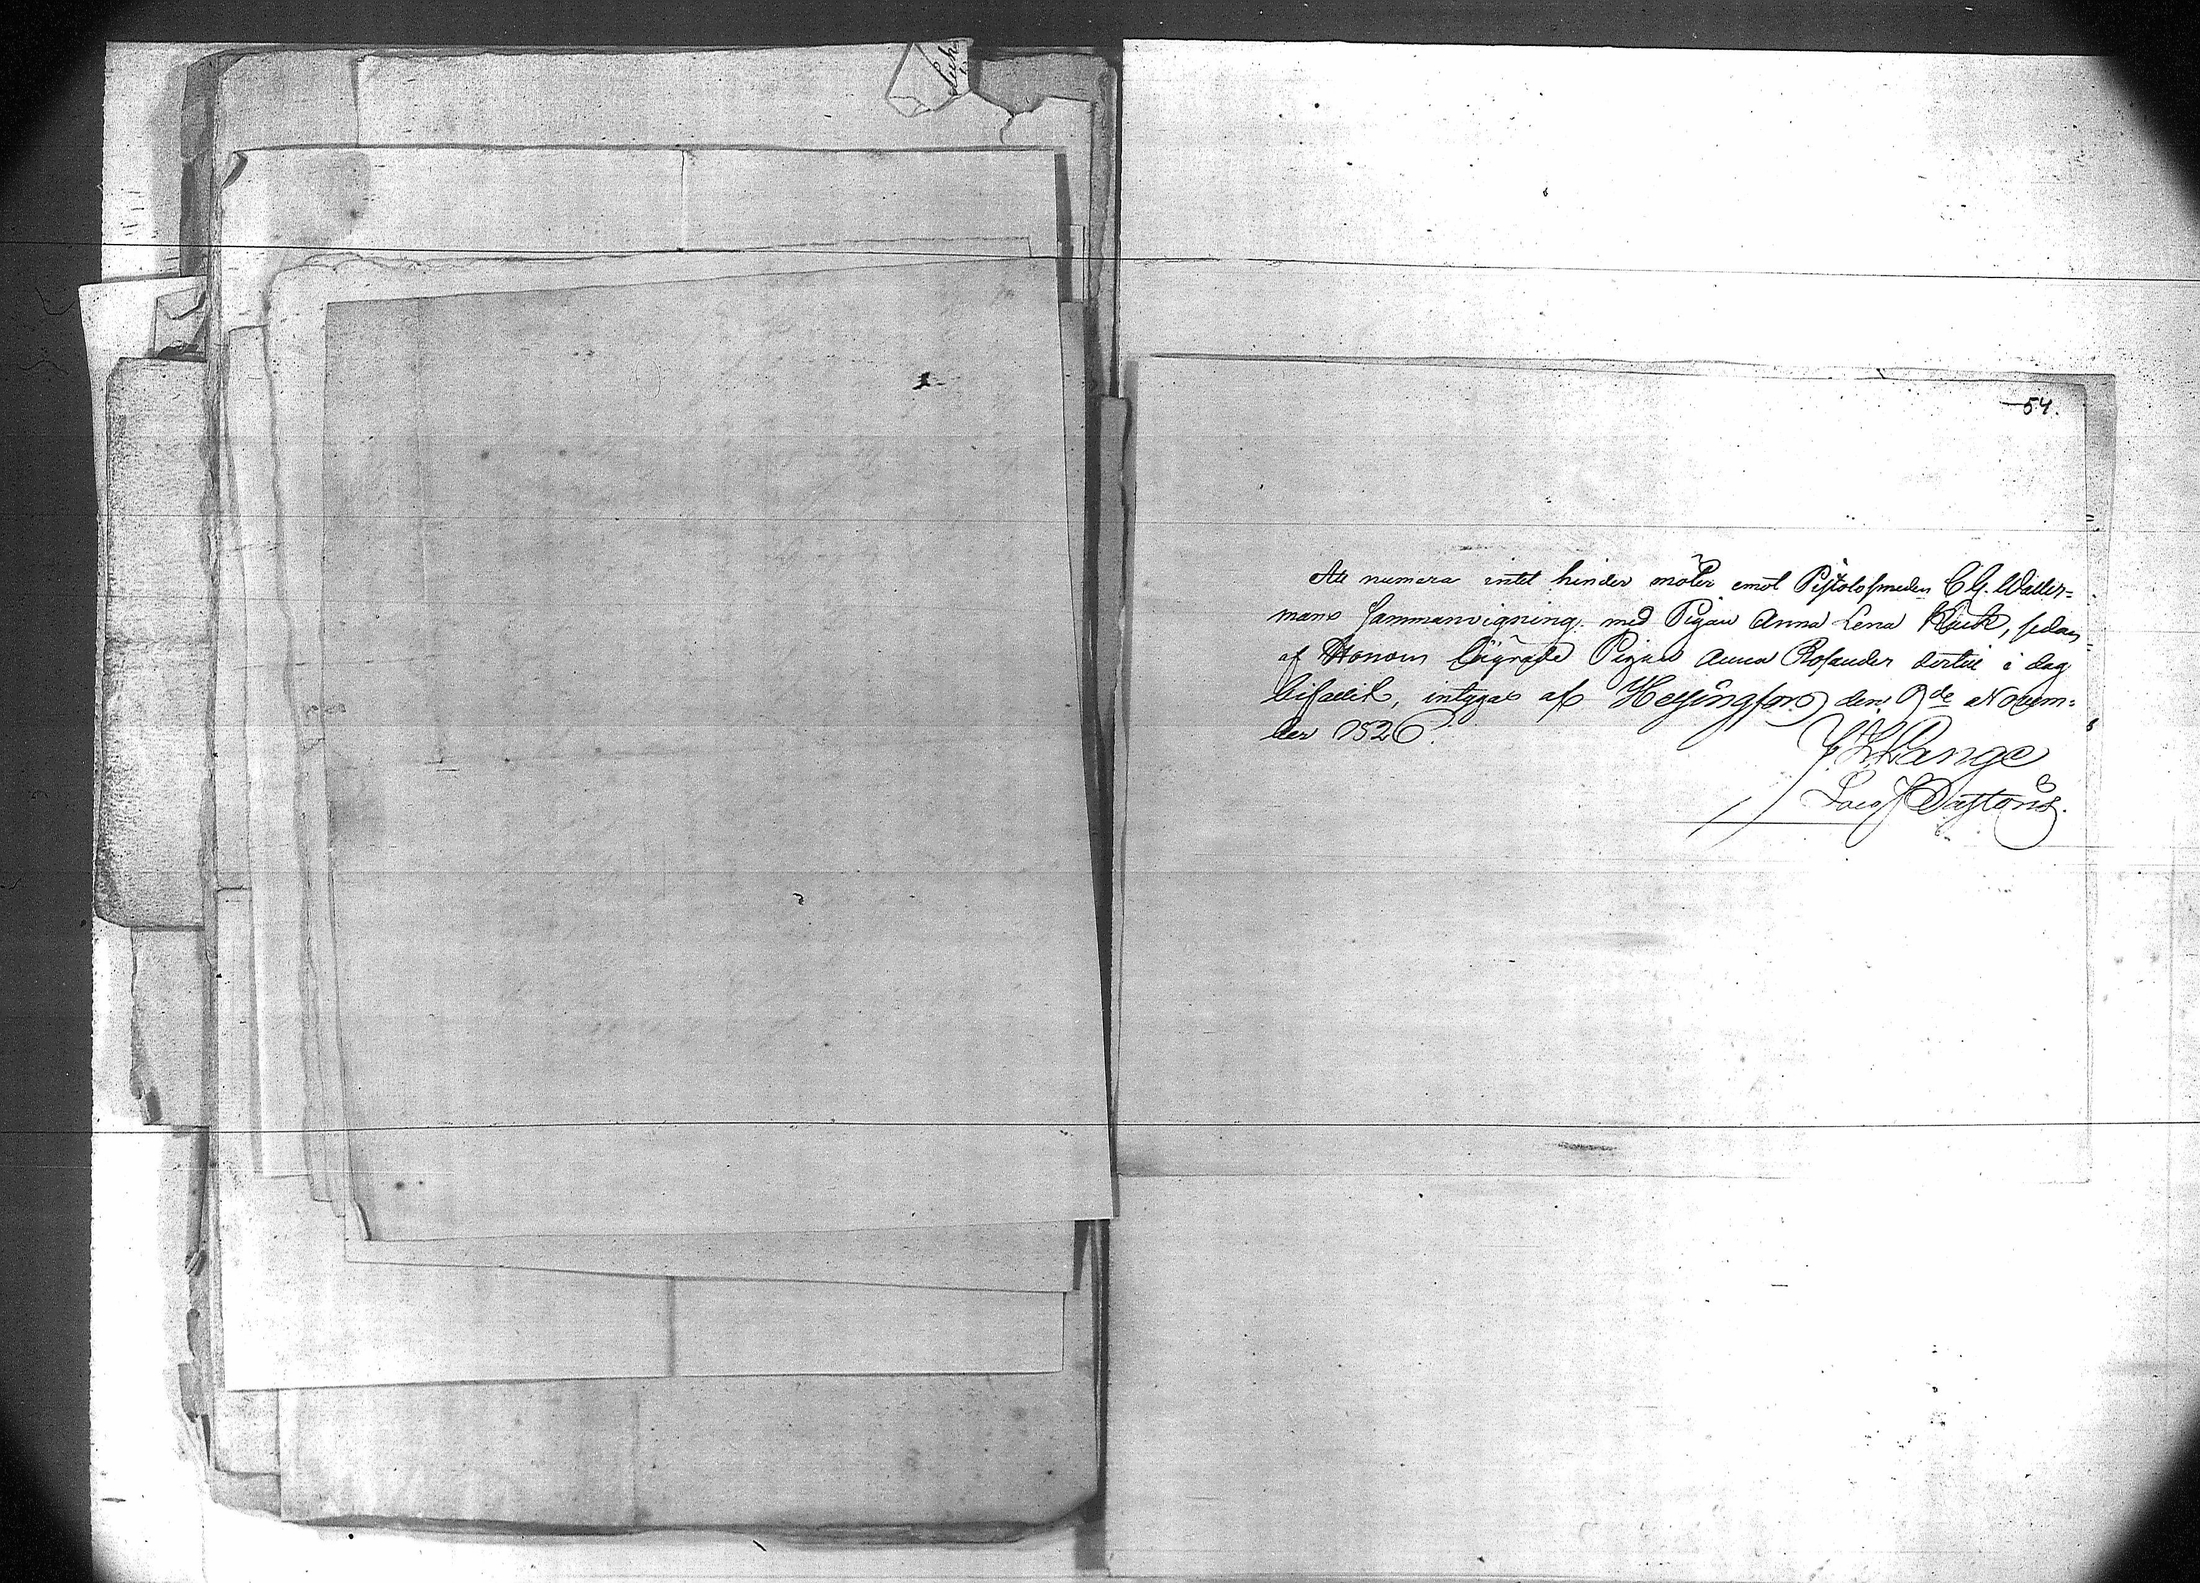 54.
Att numera intet hinder möter emot Pistolsmeden C G. Waller=
mans sammanvigning med Pigan Anna Lena Kluck, sedan
af Honom lägrade Pigan Anna Rosander dertill i dag
bifallit, intygas af Helsingfors den 9de Novem=
ber 1826.
Lange
Past